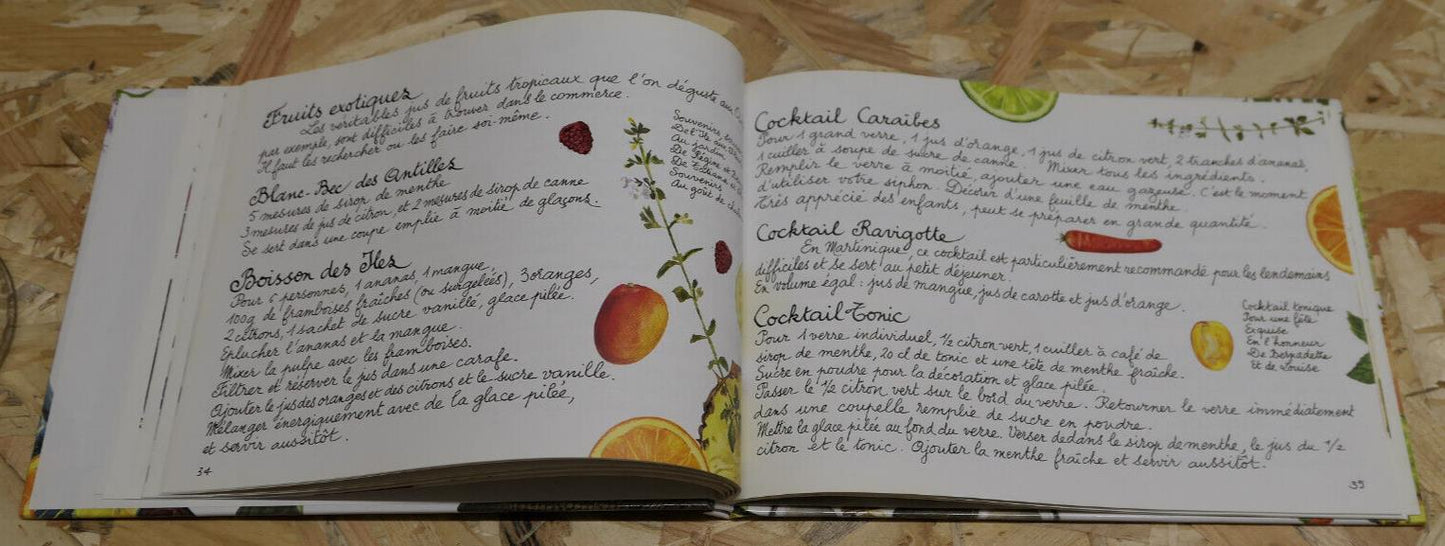 Fruits exotiques
Les véritables jus de fruits tropicaux que l'on déguste aux
par exemple, sont difficiles à trouver dans le commerce.
Il faut les rechercher ou les faire soi-même.
Blanc-Bec des Antilles
5 mesures de sirop de menthe
3 mesures de jus de citron, et 2 mesures de sirop de canne
Se sert dans une coupe emplie à moitié de glaçons.
Boisson des Iles
Pour 6 personnes, 1 ananas, 1 mangue,
100g de framboises fraîches (ou surgelées), 3 oranges,
2 citrons, 1 sachet de sucre vanillé, glace pilée.
Eplucher l'ananas et la mangue.
Mixer la pulpe avec les framboises.
Filtrer et réserver le jus dans une carafe.
Ajouter le jus des oranges et des citrons et le sucre vanille.
Mélanger énergiquement avec de la glace pilée,
et servir aussitôt.
Souvenirs
Au jardin
De Régine
De
Souvenirs
Au goût de
34
Cocktail Caraïbes
Pour 1 grand verre, 1 jus d'orange, 1 jus de citron vert, 2 tranches d'ananas,
1 cuiller à soupe de sucre de canne. Mixer tous les ingrédients.
Remplir le verre à moitié, ajouter une eau gazeuse. C'est le moment
d'utiliser votre siphon. Décorer d'une feuille de menthe.
Très apprécié des enfants, peut se préparer en grande quantité.
Cocktail Ravigotte
En Martinique, ce cocktail est particulièrement recommandé pour les lendemains
difficiles et se sert au petit déjeuner.
En volume égal : jus de mangue, jus de carotte et jus d'orange.
Cocktail-Tonic
Pour 1 verre individuel, 1/2 citron vert, 1 cuiller à café de
sirop de menthe, 20 cl de tonic et une tête de menthe fraîche.
Sucre en poudre pour la décoration et glace pilée.
Passer le 1/2 citron vert sur le bord du verre. Retourner le verre immédiatement
dans une coupelle remplie de sucre en poudre.
Mettre la glace pilée au fond du verre. Verser dedans le sirop de menthe, le jus du 1/2
citron et le tonic. Ajouter la menthe fraîche et servir aussitôt.
Cocktail tonique
Pour une fête
Exquise
En l'honneur
De Bernadette
Et de Louise
35